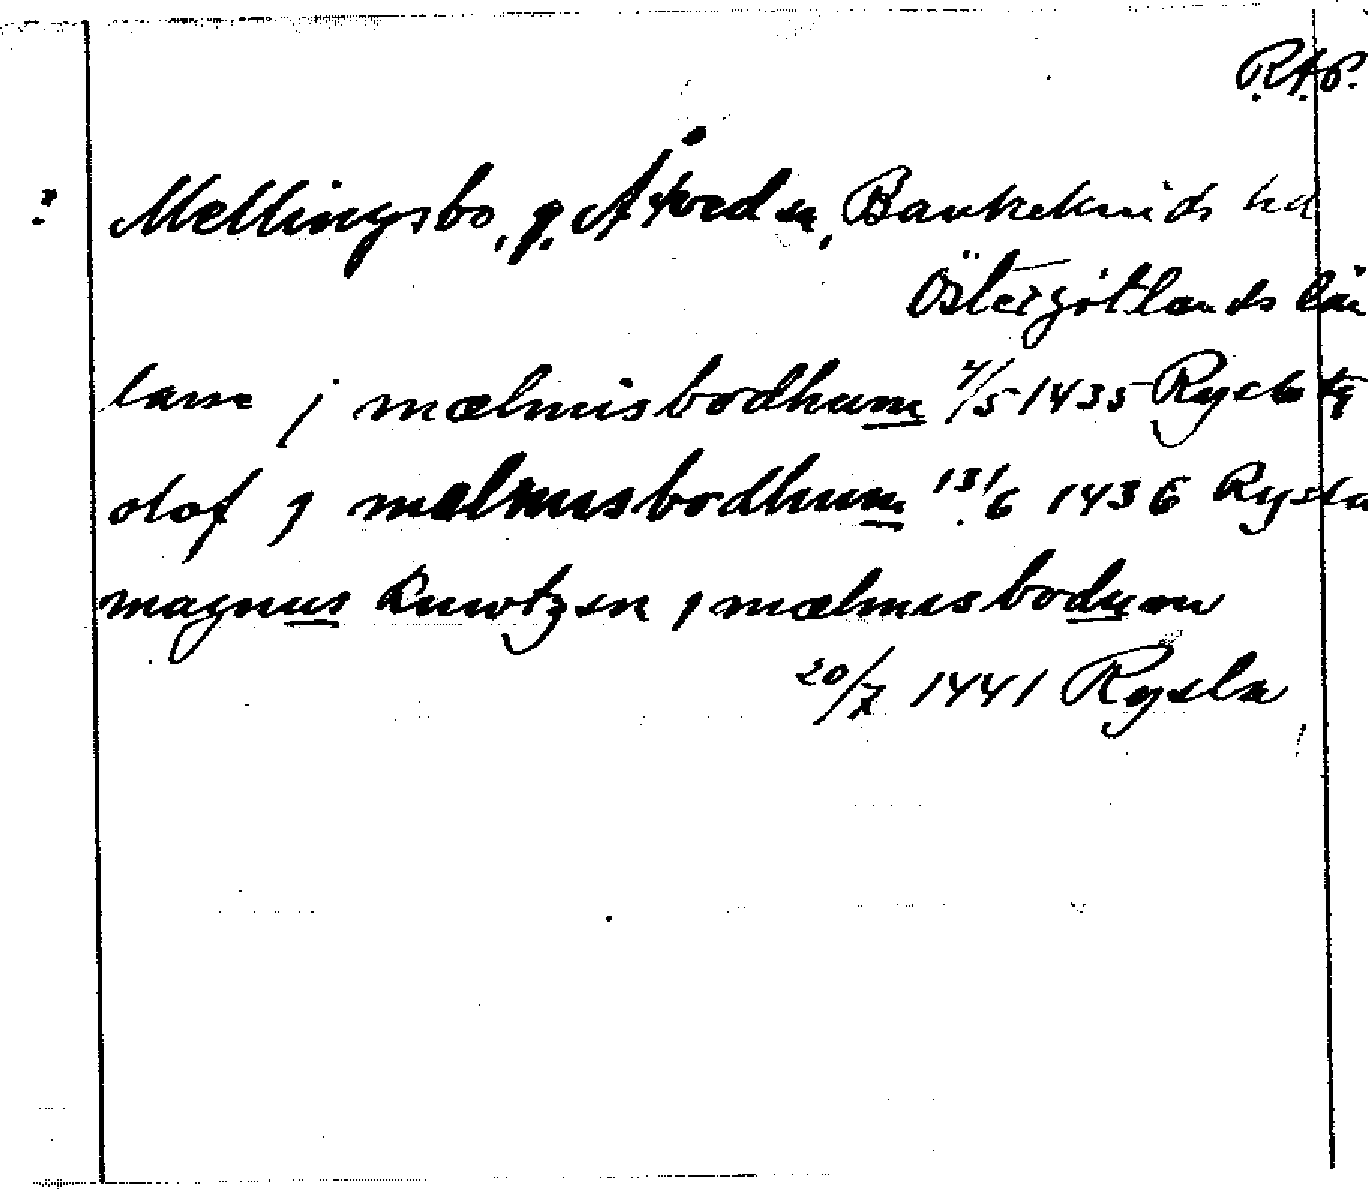 R.A.P.
? Mellingsbo, g. Åtveden, Bankekinds hd
Östergötlands län
lasse j mælmisbodhum 4/5 1435 Rystæ
olof j mælmisbodhum 13/6 1436 Rysla
magnus Knwtzsen j mælmisbodum
20/7 1441 Rysla